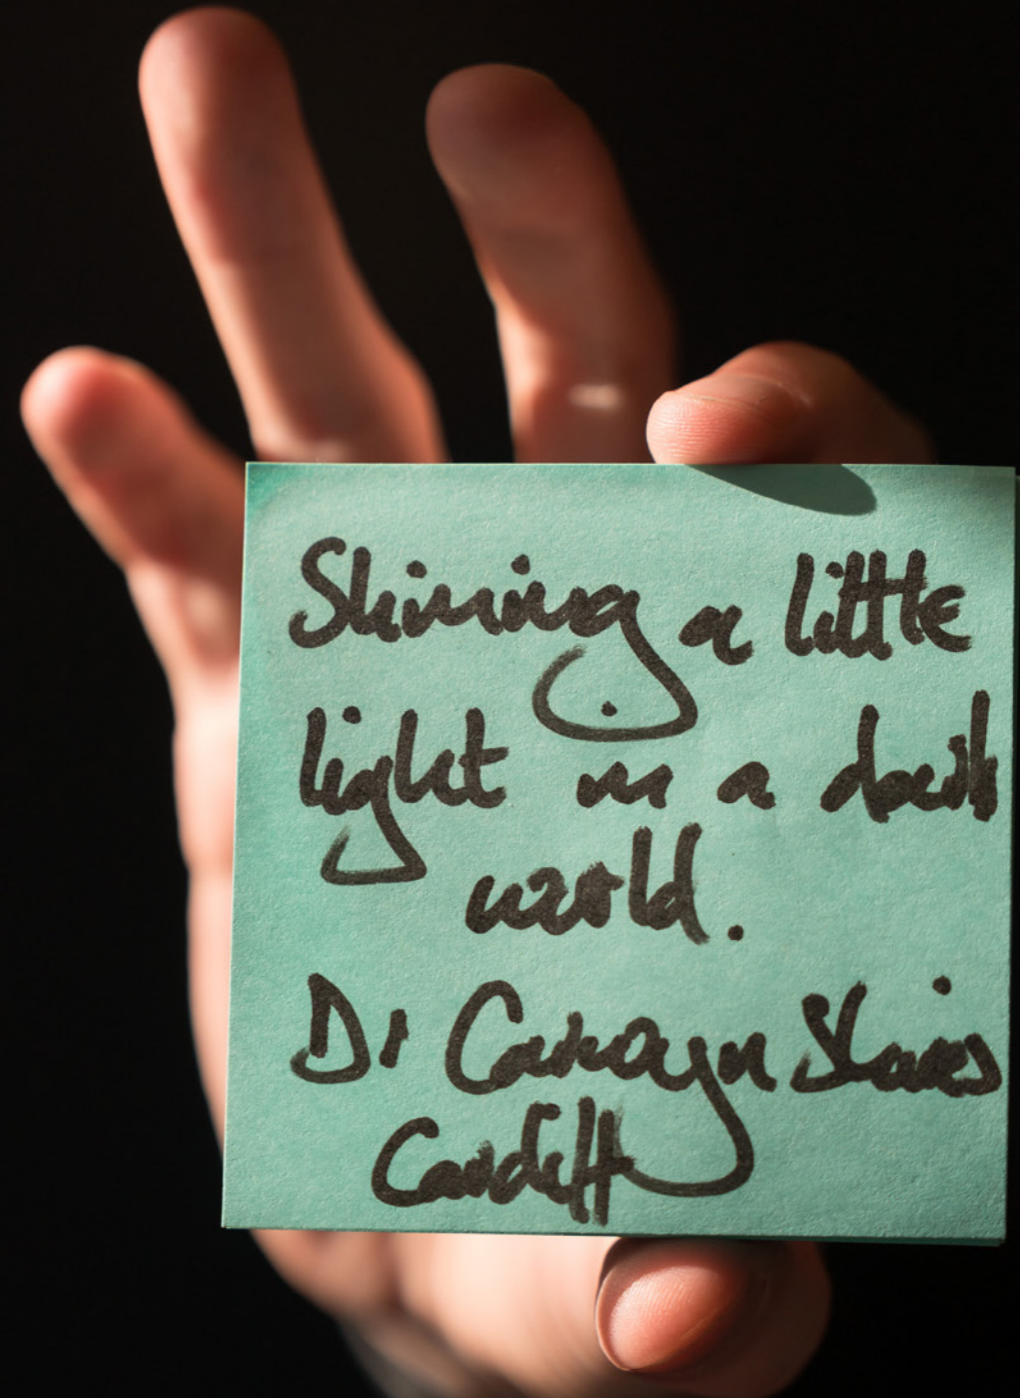 Shining a little
light in a dark
world.
Dr Carolyn
Cardiff